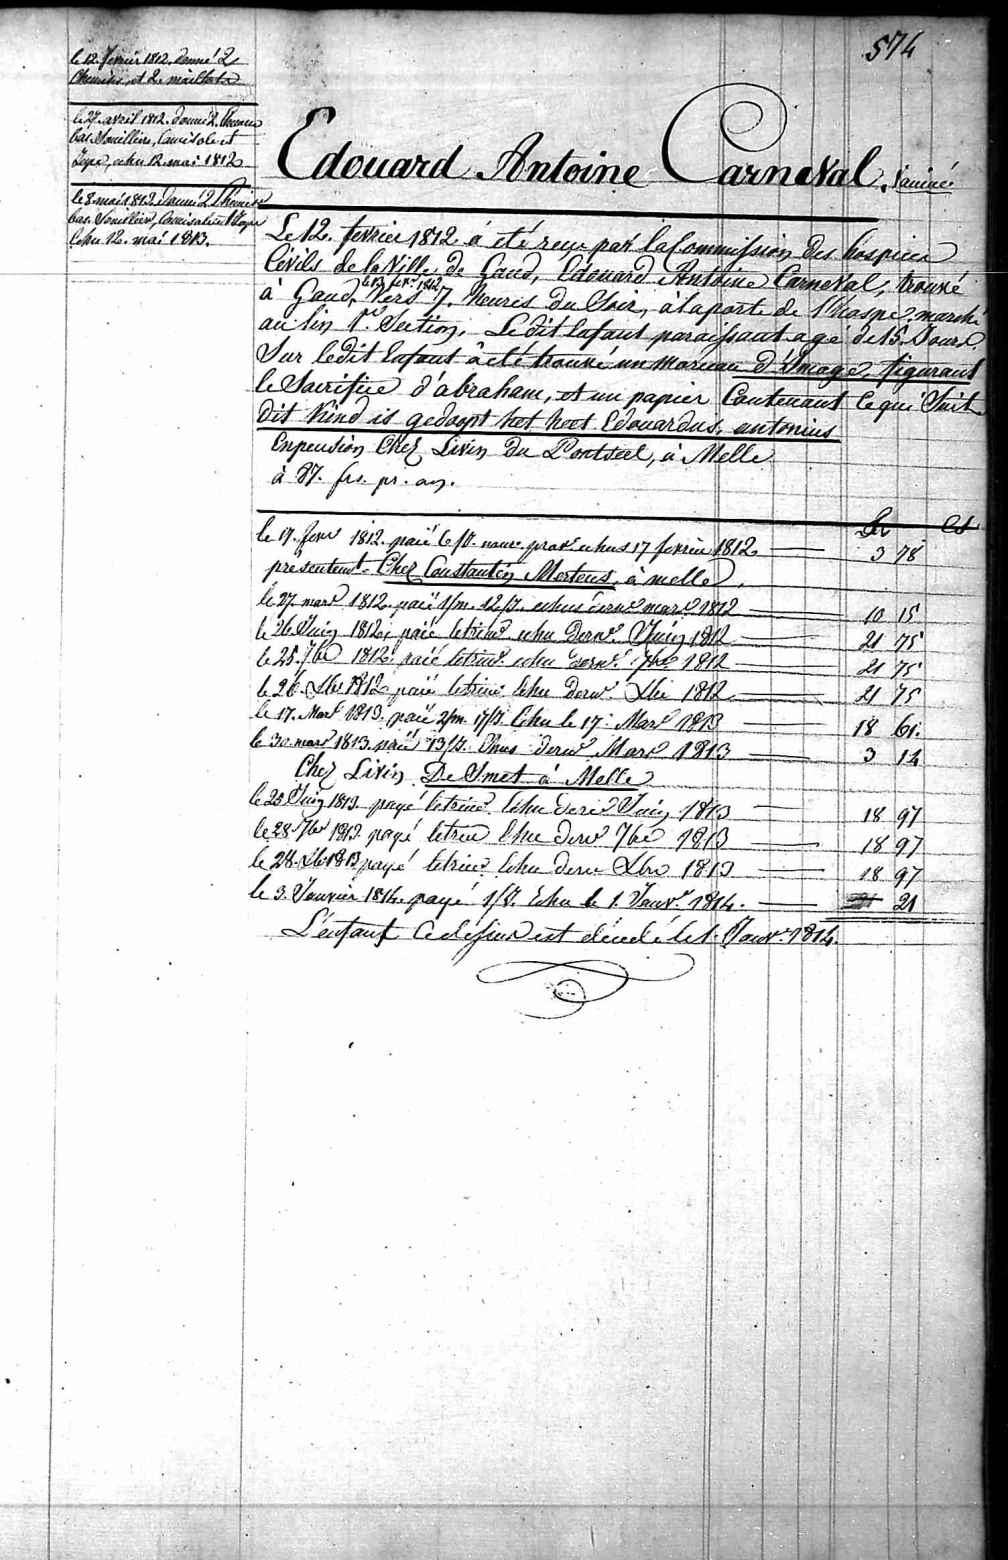 574
le 12. fevrier 1812. donné 2
Chemises, et 2. maillots
le 27. avril 1812. donné 2. Chemises
bas. Souilliere, Camisole et
Jupe, echu 12. mai 1812
le 8. mai 1813. donné 2 Chemises
bas. Souilliere, Camisole et Jupe
Echu 12. mai 1813.
Edouard Antoine Carneval.
Le 12. fevrier 1812. a été reçu par la Commission des hospices
Civils de la Ville de Gand, Edouard Antoine Carneval, trouvé
le 12 fevr. 1812
à Gand, Vers 7. heures du Soir, à la porte de marché
au lin 1re Section. Le dit Enfant paraissant agé de 15. Jours.
Sur le dit Enfant à été trouvé un morceau d'Image, figurant
le Sacrifice d'abraham, et un papier Contenant ce qui Suit
dit kind is gedoopt het heet Edouardus, antonius
Enpension Chez Livin du Pontseel, à Melle
à 87. frs. pr. an.
Fr Ct
le 17. fevr 1812. paié 6/J. nour. prov. echus 17 fevrier 1812 3 78
presentemt. Chez Constantin Mertens, à melle
le 27. mars 1812. paié 1/m. 12/J. echus dernr mars 1812 10 15
le 26 Juin 1812, paié letrimr. echu Dernr. Juin 1812 21 75
le 25. 7bre 1812. paié letrimr. echu dernr. 7bre 1812 21 75
le 26. Xbre 1812 paié letrimr. Echu dernr. Xbre 1812 21 75
le 17. Mars 1813. paié 2/m. 17/J. Echu le 17. Mars 1813 18 61.
le 30. mars 1813. paié 13/J. Echus dernr. Mars 1813 3 14
Chez Livin De Smet à Melle
le 25 Juin 1813. payé letrimr. Echu dernr Juin 1813 18 97
le 28. 7bre 1813. payé letrimr Echu dernr 7bre 1813 18 97
le 28. Xbre 1813 payé letrimr. Echu dernr Xbre 1813 18 97
le 3. Janvier 1814. payé 1/J. Echu le 1. Janvr. 1814. 21
L'enfant Cidessus est décédé le 1. Janvr. 1814.